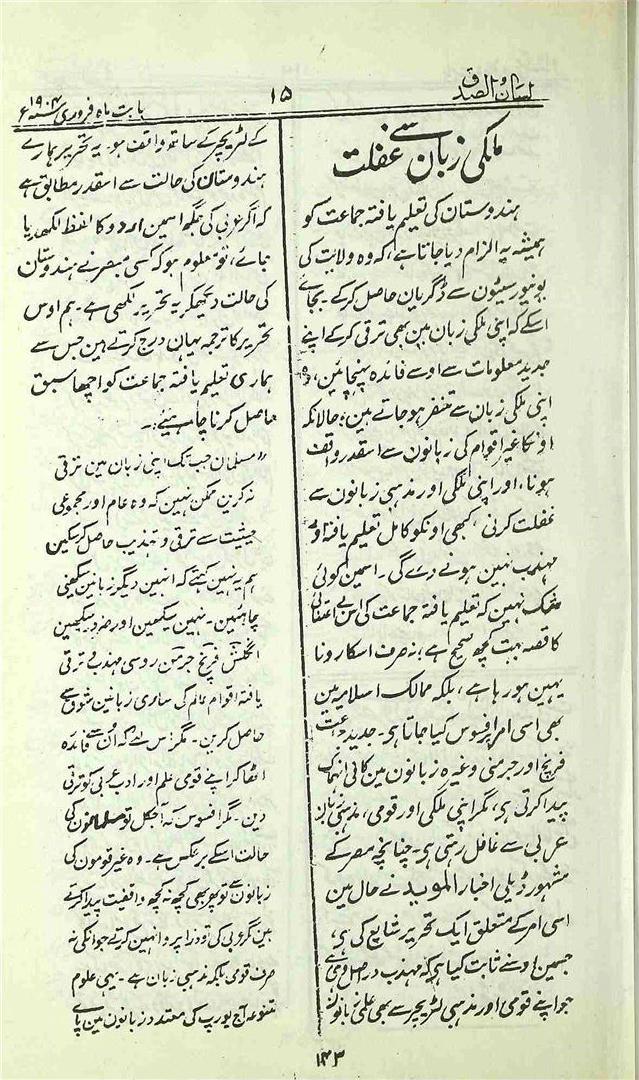 لسان الصدق
۱۵
بابت ماہ فروری سنہ ۱۹۰۴ء
ملکی زبان سے غفلت
ہندوستان کی تعلیم یافتہ جماعت کو
ہمیشہ یہ الزام دیا جاتا ہے، کہ وہ ولایت کی
یونیورسیٹیون سے ڈگریان حاصل کر کے۔ بجائے
اسکے کہ اپنی ملکی زبان مین بھی ترقی کر کے اپنے
جدید معلومات سے اوسے فائدہ پہنچائین، وہ
اپنی ملکی زبان سے متنفر ہو جاتے ہین؛ حالانکہ
اونکا غیر اقوام کی زبانون سے اسقدر واقف
ہونا، اور اپنی ملکی اور مذہبی زبانون سے
غفلت کرنی، کبھی اونکو کامل تعلیم یافتہ اور
مہذب نہین ہونے دے گی۔ اسمین کوئی
شک نہین کہ تعلیم یافتہ جماعت کی اس بے اعتنائی
کا قصہ بہت کچھ صحیح ہے؛ نہ صرف اسکا رونا
یہین ہو رہا ہے، بلکہ ممالک اسلامیہ مین
بھی اسی امر پر افسوس کیا جاتا ہی۔ جدید جماعت
فریخ اور جرمنی وغیرہ زبانون مین کافی انہماک
پیدا کرتی ہی، مگر اپنی ملکی اور قومی، مذہبی زبان
عربی سے غافل رہتی ہی۔ چنانچہ مصر کے
مشہور ڈیلی اخبار الموید نے حال مین
اسی امر کے متعلق ایک تحریر شایع کی ہی،
جسمین اوسنے ثابت کیا ہی کہ مہذب دراصل وہی ہے
جو اپنے قومی اور مذہبی لٹریچر سے بھی علمی زبانون
کے لٹریچر کے ساتھ واقف ہو۔ یہ تحریر ہمارے
ہندوستان کی حالت سے اسقدر مطابق ہے
کہ اگر عربی کی جگہ اسمین اردو کا لفظ لکھدیا
جائے، تو معلوم ہو کہ کسی مبصر نے ہندوستان
کی حالت دیکھکر یہ تحریر لکھی ہے۔ ہم اوس
تحریر کا ترجمہ یہان درج کرتے ہین جس سے
ہماری تعلیم یافتہ جماعت کو اچھا سبق
حاصل کرنا چاہیئے:۔
"مسلمان جب تک اپنی زبان مین ترقی
نہ کرین ممکن نہین کہ وہ عام اور مجموعی
حیثیت سے ترقی و تہذیب حاصل کر سکین
ہم یہ نہین کہتے کہ انہین دیگر زبانین سیکھنی
چاہئین۔ نہین سیکھین اور ضرور سیکھین
انگلش فریخ جرمن روسی مہذب ترقی
یافتہ اقوام عالم کی ساری زبانین شوق سے
حاصل کرین۔ مگر اس لئے کہ اُن سے فائدہ
اٹھا کر اپنے قومی علم اور ادب عربی کو ترقی
دین۔ مگر افسوس کہ آجکل تو مسلمانون کی
حالت اسکے برعکس ہے۔ وہ غیر قومون کی
زبانون سے تو پھر بھی کچھ نہ کچھ واقفیت پیدا کرتے
ہین مگر عربی کی تو ذرا پروا نہین کرتے جو انکی نہ
صرف قومی بلکہ مذہبی زبان ہے۔ یہی علوم
متنوعہ آج یورپ کی متعدد زبانون مین پائے
۱۴۳